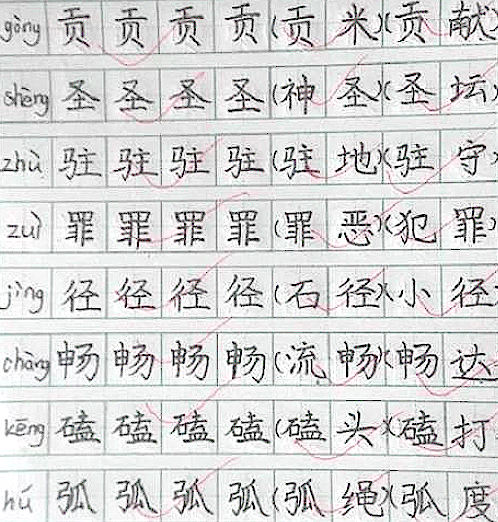 gòng 贡 贡 贡 贡 (贡 米)(贡 献)
shèng 圣 圣 圣 圣 (神 圣)(圣 坛)
zhù 驻 驻 驻 驻 (驻 地)(驻 守)
zuì 罪 罪 罪 罪 (罪 恶)(犯 罪)
jìng 径 径 径 径 (石 径)(小 径
chàng 畅 畅 畅 畅 (流 畅)(畅 达
kēng 磕 磕 磕 磕 (磕 头)(磕 打
hú 弧 弧 弧 弧 (弧 绳)(弧 度